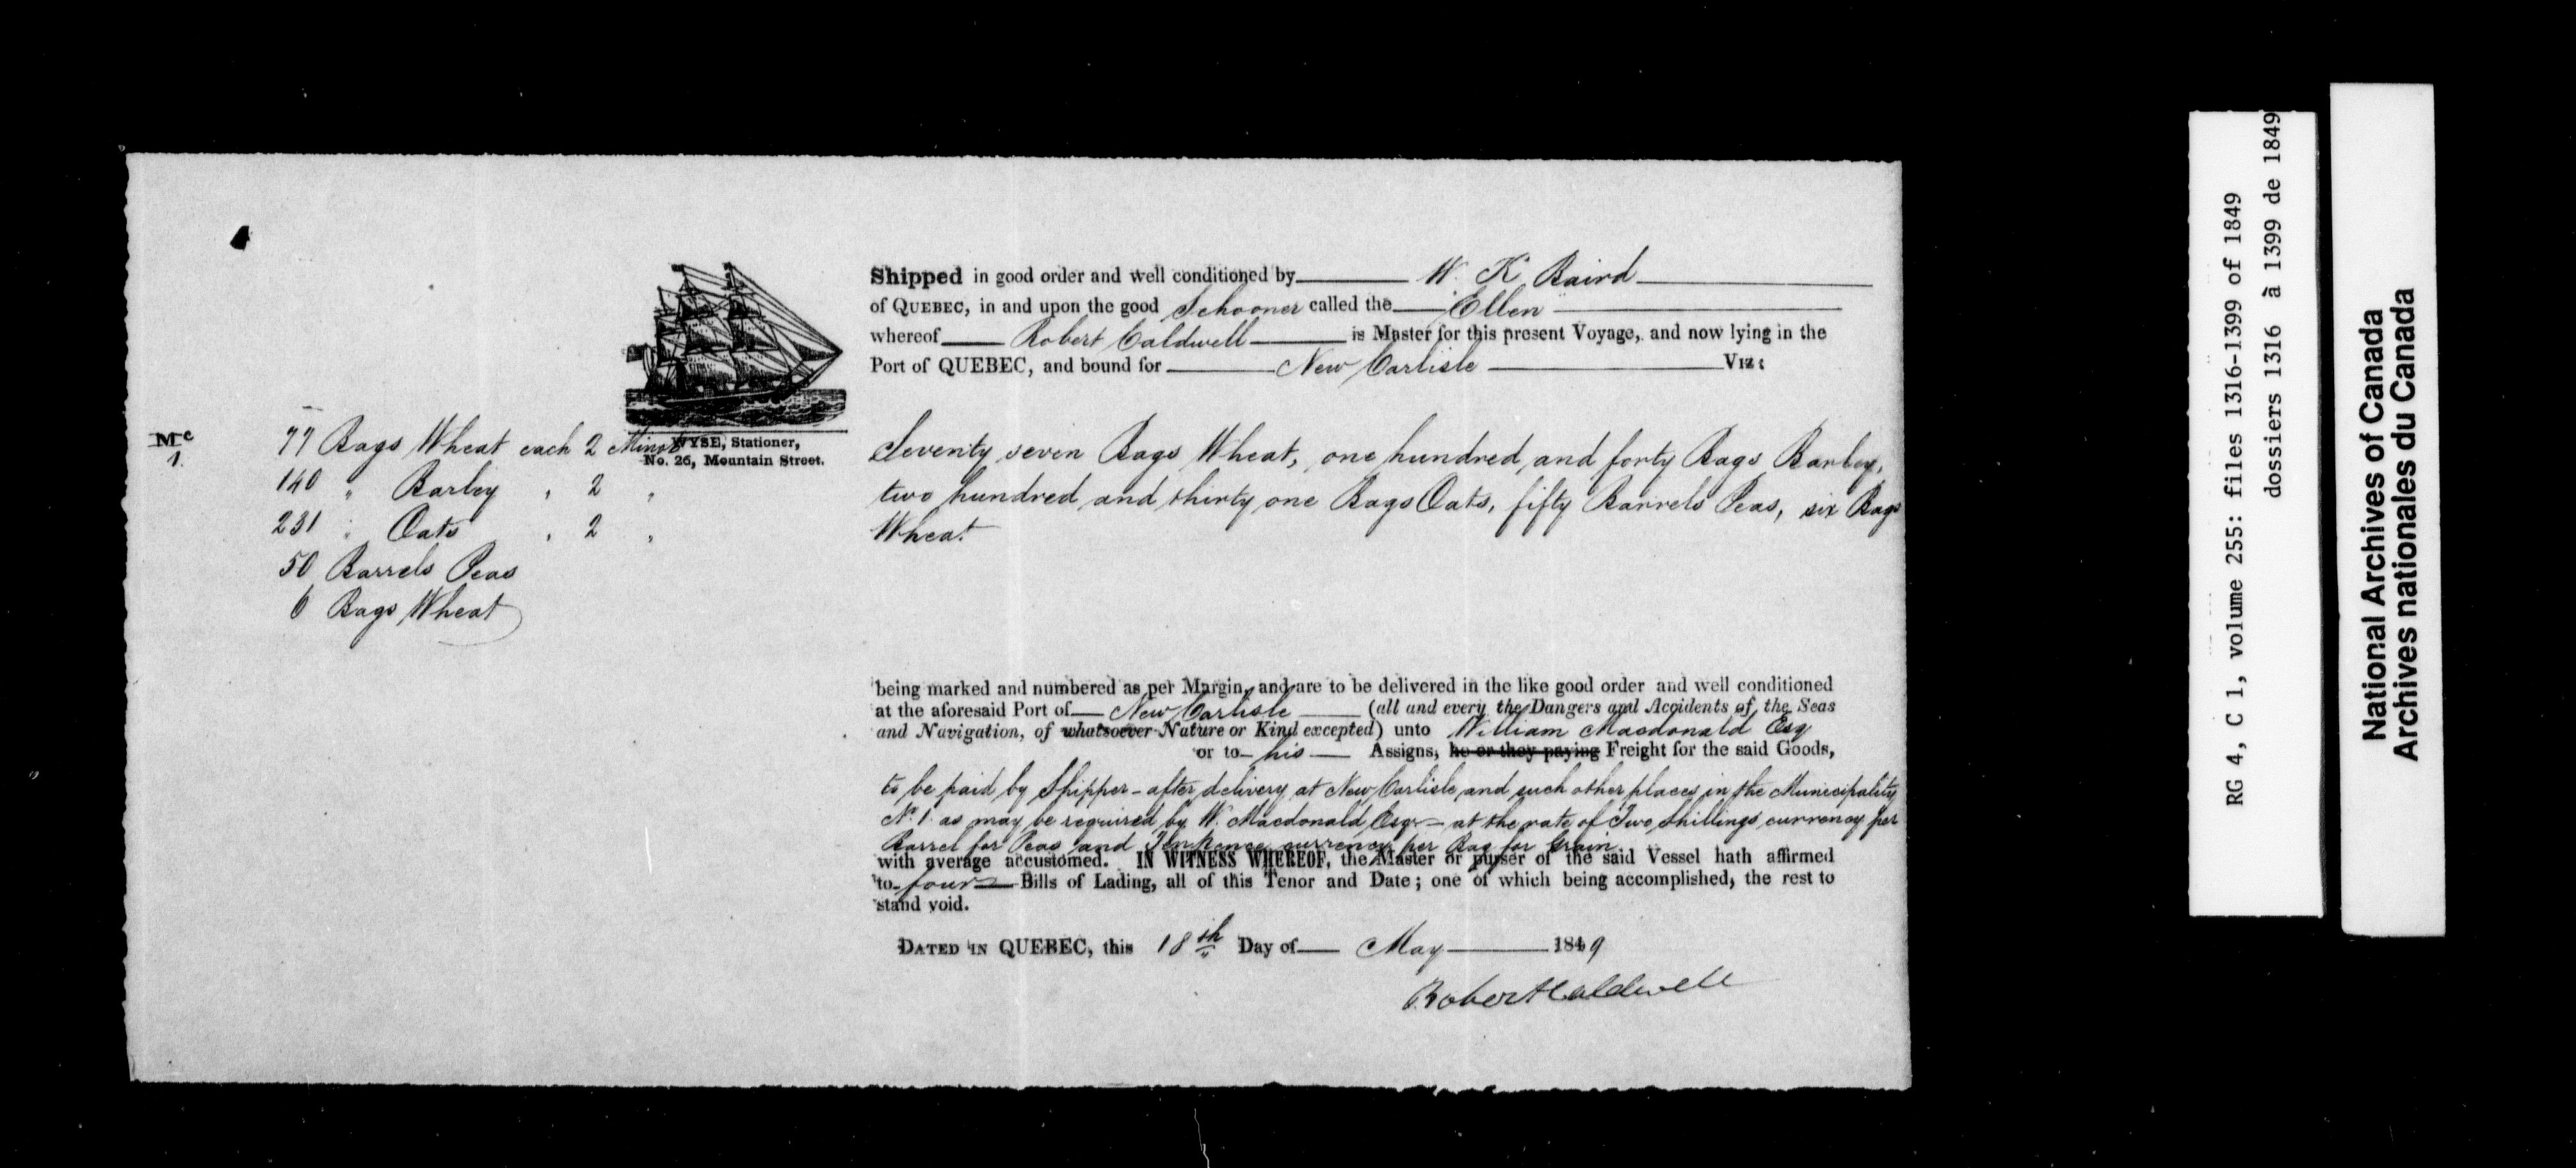 Shipped in good order and well conditioned by W. K. Baird
of QUEBEC, in and upon the good Schooner called the Ellen
whereof Robert Caldwell is Master for this present Voyage, and now lying in the
Port of QUEBEC, and bound for New Carlisle VIZ:
WYSE, Stationer,
No. 26, Mountain Street.
Mc
1.
77 Bags Wheat each 2 Minots
140 " Barley " 2 "
231 " Oats " 2 "
50 Barrels Peas
6 Bags Wheat
Seventy seven Bags Wheat, one hundred and forty Bags Barley,
two hundred and thirty one Bags Oats, fifty Barrels Peas, six Bags
Wheat
being marked and numbered as per Margin, and are to be delivered in the like good order and well conditioned
at the aforesaid Port of New Carlisle (all and every the Dangers and Accidents of the Seas
and Navigation, of whatsoever Nature or Kind excepted) unto William Macdonald Esq
or to his Assigns, he or they paying Freight for the said Goods,
to be paid by Shipper - after delivery at New Carlisle and such other places in the Municipality
No. 1. as may be required by W. Macdonald Esqr - at the rate of Two Shillings currency per
Barrel for Peas and Tenpence currency per Bag for Grain
with average accustomed. IN WITNESS WHEREOF, the Master or purser of the said Vessel hath affirmed
to four Bills of Lading, all of this Tenor and Date; one of which being accomplished, the rest to
stand void.
DATED IN QUEBEC, this 18th Day of May 1849
Robert Caldwell
RG 4, C 1, volume 255: files 1316-1399 of 1849
dossiers 1316 à 1399 de 1849
National Archives of Canada
Archives nationales du Canada